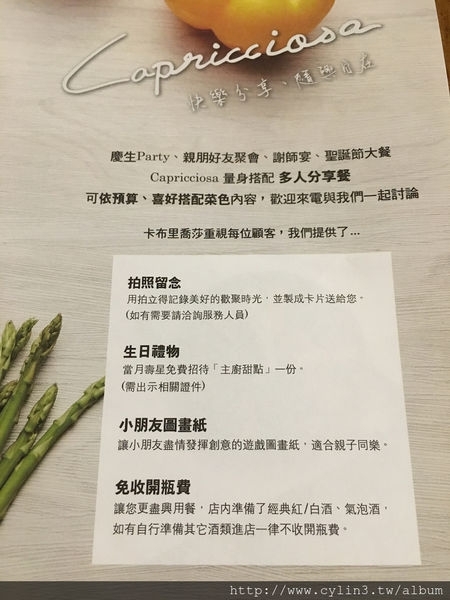 Capricciosa
快樂分享、隨興自在
慶生Party、親朋好友聚會、謝師宴、聖誕節大餐
Capricciosa 量身搭配 多人分享餐
可依預算、喜好搭配菜色內容，歡迎來電與我們一起討論
卡布里喬莎重視每位顧客，我們提供了...
拍照留念
用拍立得記錄美好的歡聚時光，並製成卡片送給您。
(如有需要請洽詢服務人員)
生日禮物
當月壽星免費招待「主廚甜點」一份。
(需出示相關證件)
小朋友圖畫紙
讓小朋友盡情發揮創意的遊戲圖畫紙，適合親子同樂。
免收開瓶費
讓您更盡興用餐，店內準備了經典紅/白酒、氣泡酒，
如有自行準備其它酒類進店一律不收開瓶費。
http://www.cylin3.tw/album